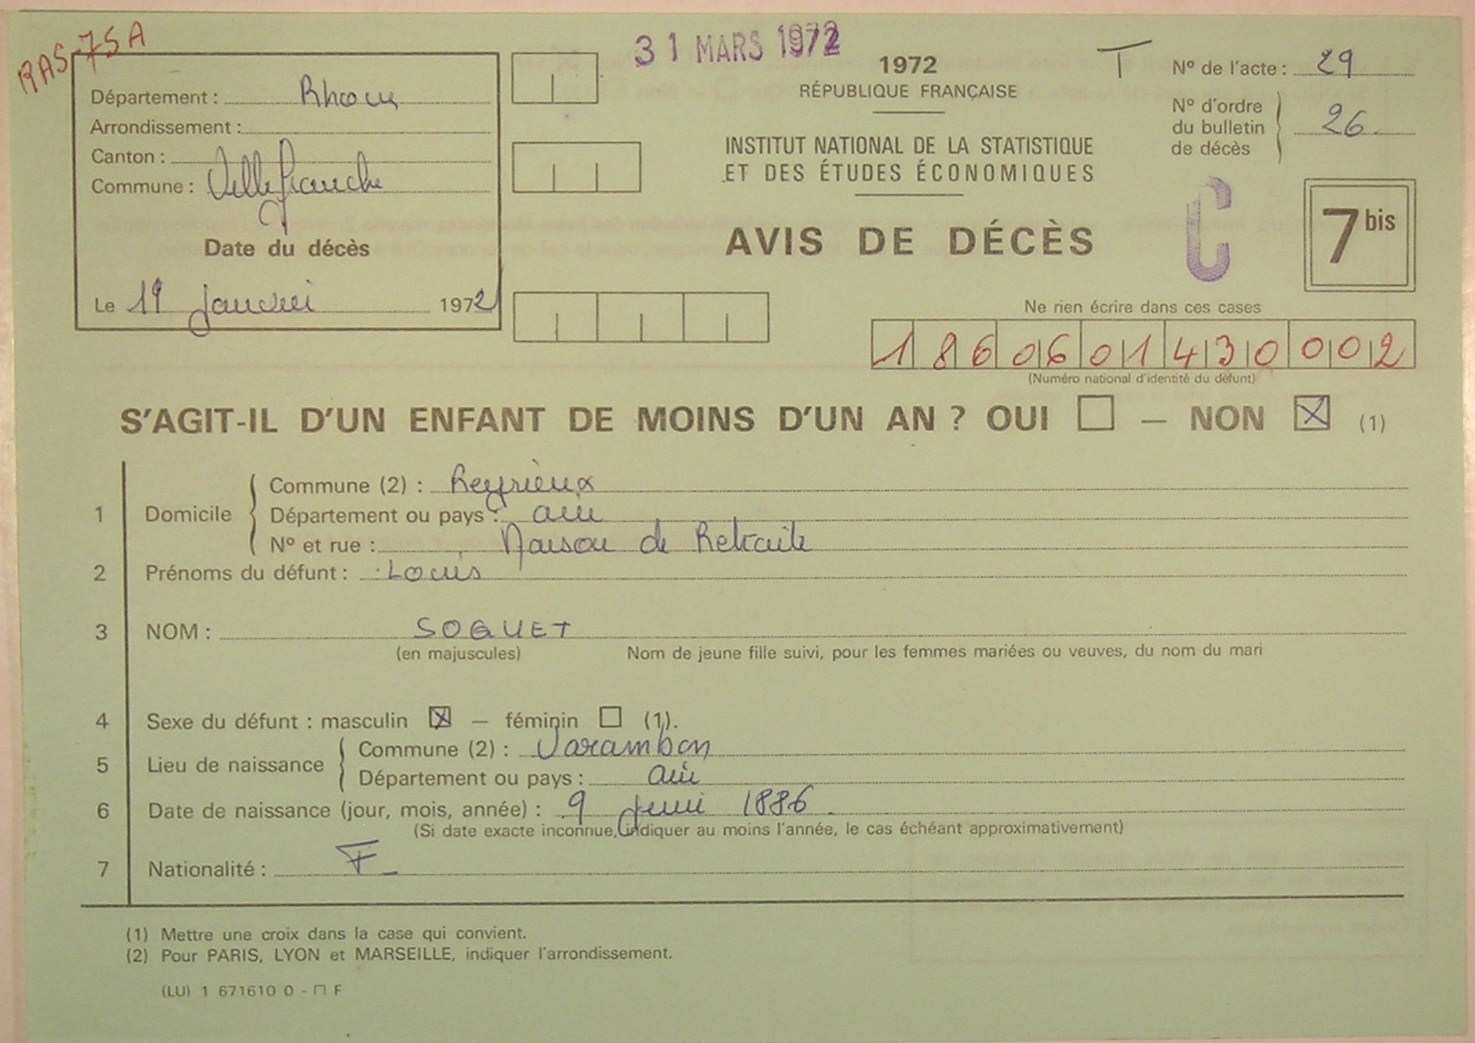 RAS-75A
31 MARS 1972
Département : Rhone
Arrondissement :
Canton :
Commune : Villefranche
Date du décès
Le 19 Janvier 1972
1972
RÉPUBLIQUE FRANÇAISE
INSTITUT NATIONAL DE LA STATISTIQUE
ET DES ÉTUDES ÉCONOMIQUES
AVIS DE DÉCÈS
T
N° de l'acte : 29
N° d'ordre
du bulletin
de décès
26
C
7 bis
Ne rien écrire dans ces cases
1 86 06 01 430 002
(Numéro national d'identité du défunt)
S'AGIT-IL D'UN ENFANT DE MOINS D'UN AN ? OUI ☐ — NON ☒ (1)
1 Domicile
Commune (2) : Reyrieux
Département ou pays : ain
N° et rue : Maison de Retraite
2 Prénoms du défunt : Louis
3 NOM : SOGUET
(en majuscules) Nom de jeune fille suivi, pour les femmes mariées ou veuves, du nom du mari
4 Sexe du défunt : masculin ☒ — féminin ☐ (1).
5 Lieu de naissance
Commune (2) : Varambon
Département ou pays : ain
6 Date de naissance (jour, mois, année) : 9 Juin 1886
(Si date exacte inconnue, indiquer au moins l'année, le cas échéant approximativement)
7 Nationalité : F
(1) Mettre une croix dans la case qui convient.
(2) Pour PARIS, LYON et MARSEILLE, indiquer l'arrondissement.
(LU) 1 671610 0 - ☐ F